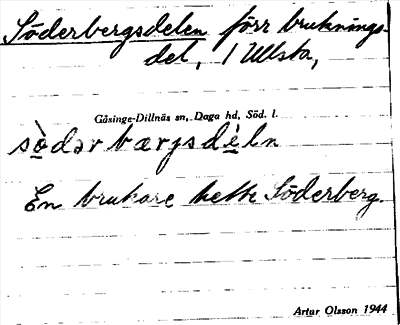 Söderbergsdelen förr bruknings-
del, 1 Ullsta,
Gåsinge-Dillnäs sn, Daga hd, Söd. l.
sò̱dərbærjsdè̱ln
En brukare hette Söderberg.
Artur Olsson 1944